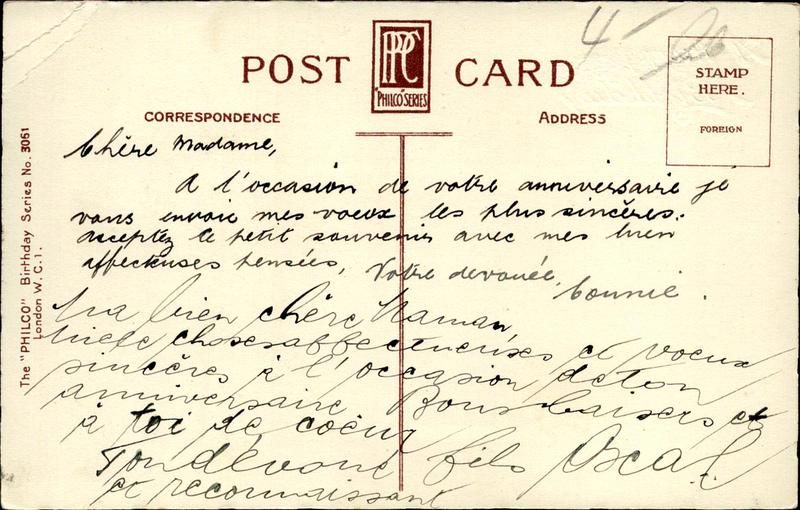 4
POST CARD
PPC
"PHILCO" SERIES
STAMP
HERE.
FOREIGN
CORRESPONDENCE
ADDRESS
The "PHILCO" Birthday Series No. 3061
London W.C.1.
Chère Madame,
A l'occasion de votre anniversaire je
vous envoie mes voeux les plus sincères.
Acceptez le petit souvenir avec mes bien
affectueuses pensées, Votre dévouée,
Connie.
Ma bien chère Maman,
Mille choses affectueuses et voeux
sincères à l'occasion de ton
anniversaire Bons baisers et
à toi de coeur
Ton dévoué fils Oscar
et reconnaissant